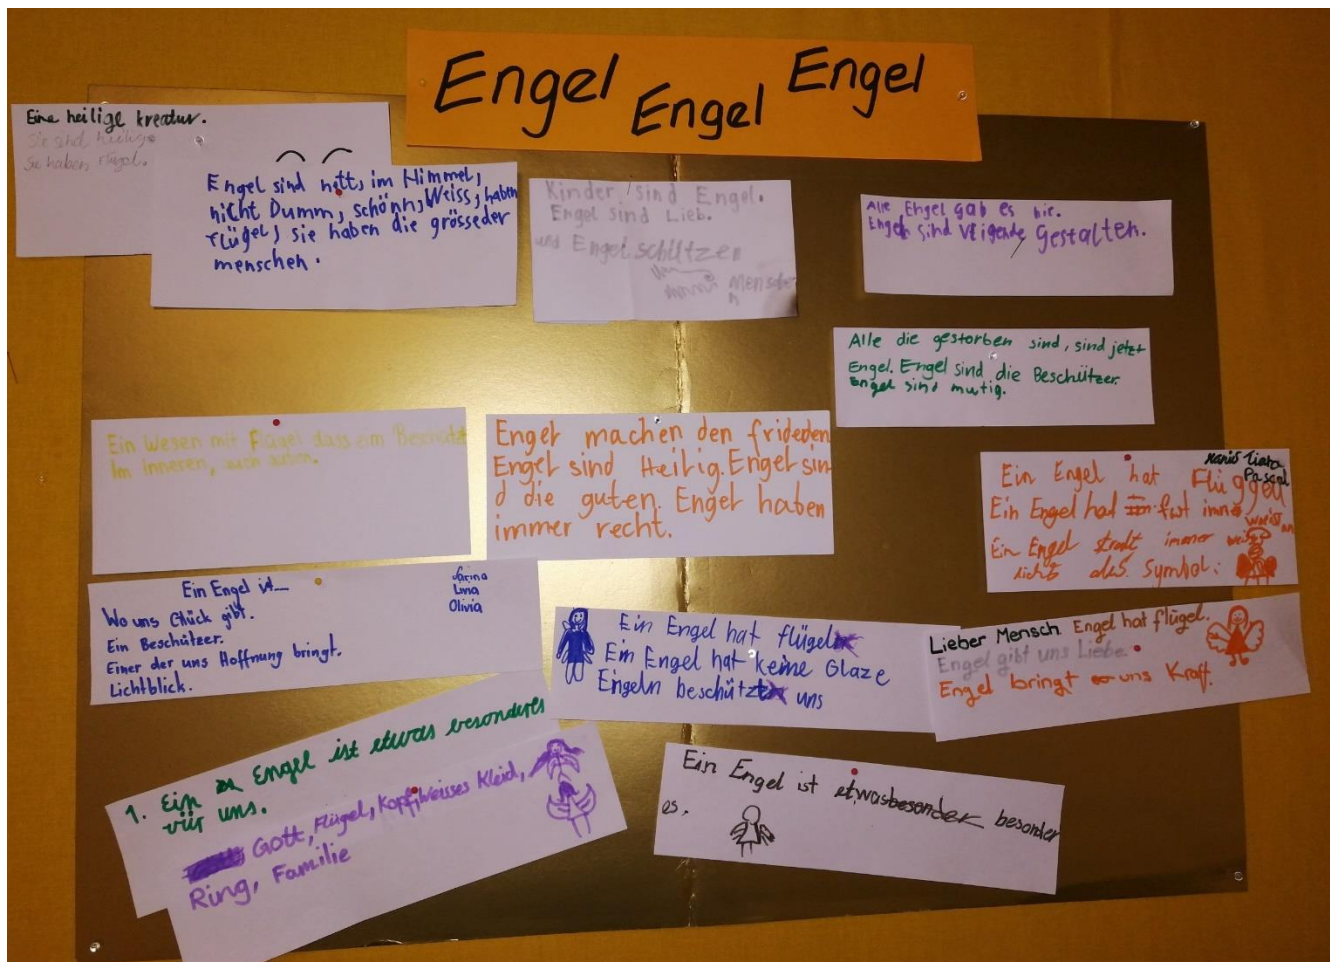 Engel Engel Engel
Eine heilige kreatur.
Sie sind heilig
Sie haben
Engel sind nett, im Himmel,
nicht Dumm, schönn, Weiss, haben
Flügel, sie haben die grösseder
menschen.
Kinder sind Engel.
Engel sind Lieb.
und Engel schützen
Menschen
Alle Engel gab es nie.
Engel sind Gestalten.
Alle die gestorben sind, sind jetzt
Engel. Engel sind die Beschützer.
Engel sind mutig.
Ein Wesen mit Flügel dass ein Beschützt
Im inneren, auch
Engel machen den frideden
Engel sind Heilig. Engel sin
d die guten. Engel haben
immer recht.
Tiara
Pascal
Ein Engel hat Flüggel
Ein Engel hat fast
Ein Engel immer
licht als Symbol:
Ein Engel ist...
Sarina
Livia
Olivia
Wo uns Glück gibt.
Ein Beschützer.
Einer der uns Hoffnung bringt.
Lichtblick.
Ein Engel hat flügel
Ein Engel hat keine Glaze
Engeln beschützt uns
Lieber Mensch Engel hat flügel.
Engel gibt uns Liebe.
Engel bringt uns Kraft.
1. Ein Engel ist etwas besonderes
vür uns.
Gott, Flügel, Kopf, Weisses Kleid,
Ring, Familie
Ein Engel ist etwas besonder
es.